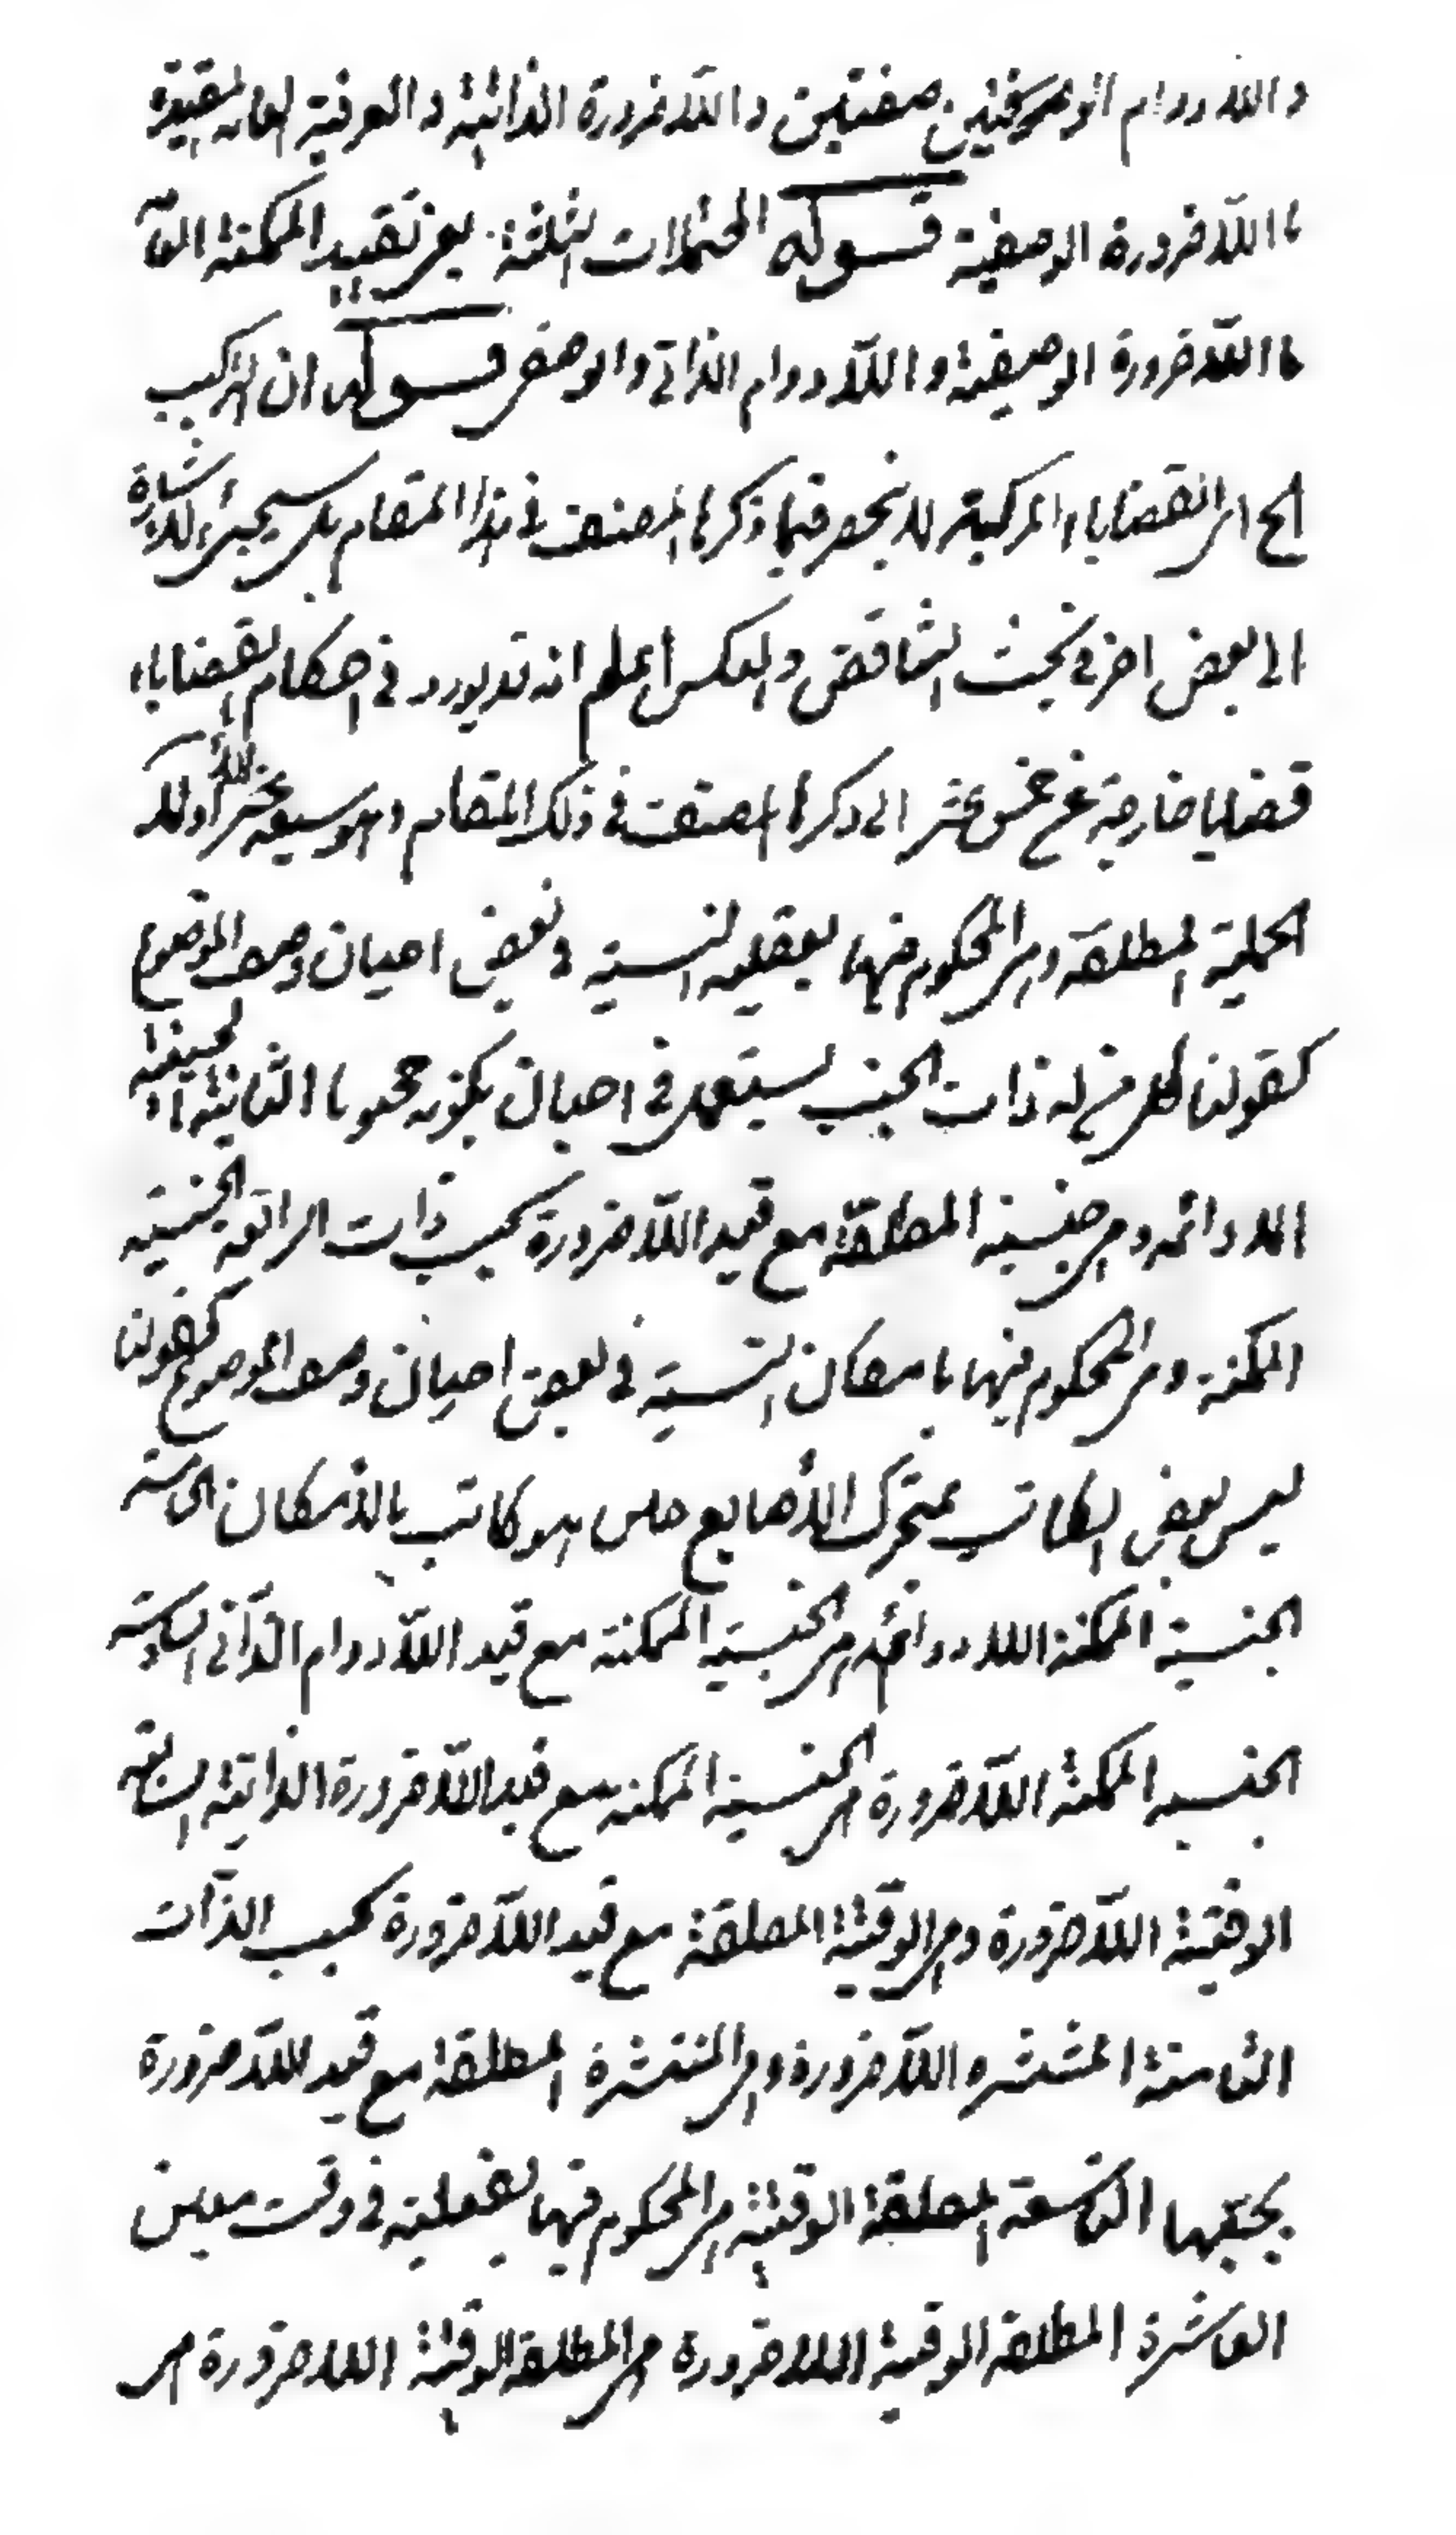 واللادوام الوصفيين صفتين واللاضرورة الذاتية والعرفية العامة المقيدة
با اللاضرورة الوصفية قوله احتمالات الثلثة يعني تقييد الممكنة العامة
با اللاضرورة الوصفية واللادوام الذاتي والوصفي قوله ان التركيب
الخ اى القضايا المركبة لا ينحصر فيما ذكرها المصنف في هذا المقام بل سيجئ الاشارة
الى بعض اخر في بحث التناقض والعكس اعلم انه قد يورد في احكام القضايا
قضايا خارجة عن خمس عشر التى ذكرها المصنف في ذلك المقام
الحملية المطلقة وهى المحكوم فيها بفعلية النسبة في بعض احيان وصف الموضوع
كقولنا كل من له ذات الجنب يسعل في احيان يكونه مجنوبا الثانية الحينية
اللادائمة وهى حينية المطلقة مع قيد اللاضرورة بحسب ذات الرابعة الحينية
الممكنة وهى المحكوم فيها بامكان النسبة في بعض احيان وصف الموضوع كقولنا
ليس بعض الكاتب بمتحرك الأصابع حين هو كاتب بالامكان الخامسة
الحينية الممكنة اللادائمة هى الحينية الممكنة مع قيد اللادوام الذاتى السادسة
الحينية الممكنة اللاضرورة هى الحينية الممكنة مع قيد اللاضرورة الذاتية السابعة
الوقتية اللاضرورة وهى الوقتية المطلقة مع قيد اللاضرورة بحسب الذات
الثامنة المنتشرة اللاضرورة وهى المنتشرة المطلقة مع قيد اللاضرورة
بحسبها التاسعة المطلقة الوقتية هى المحكوم فيها بفعلية في وقت معين
العاشرة المطلقة الوقتية اللاضرورة هى المطلقة الوقتية اللاضرورة هى